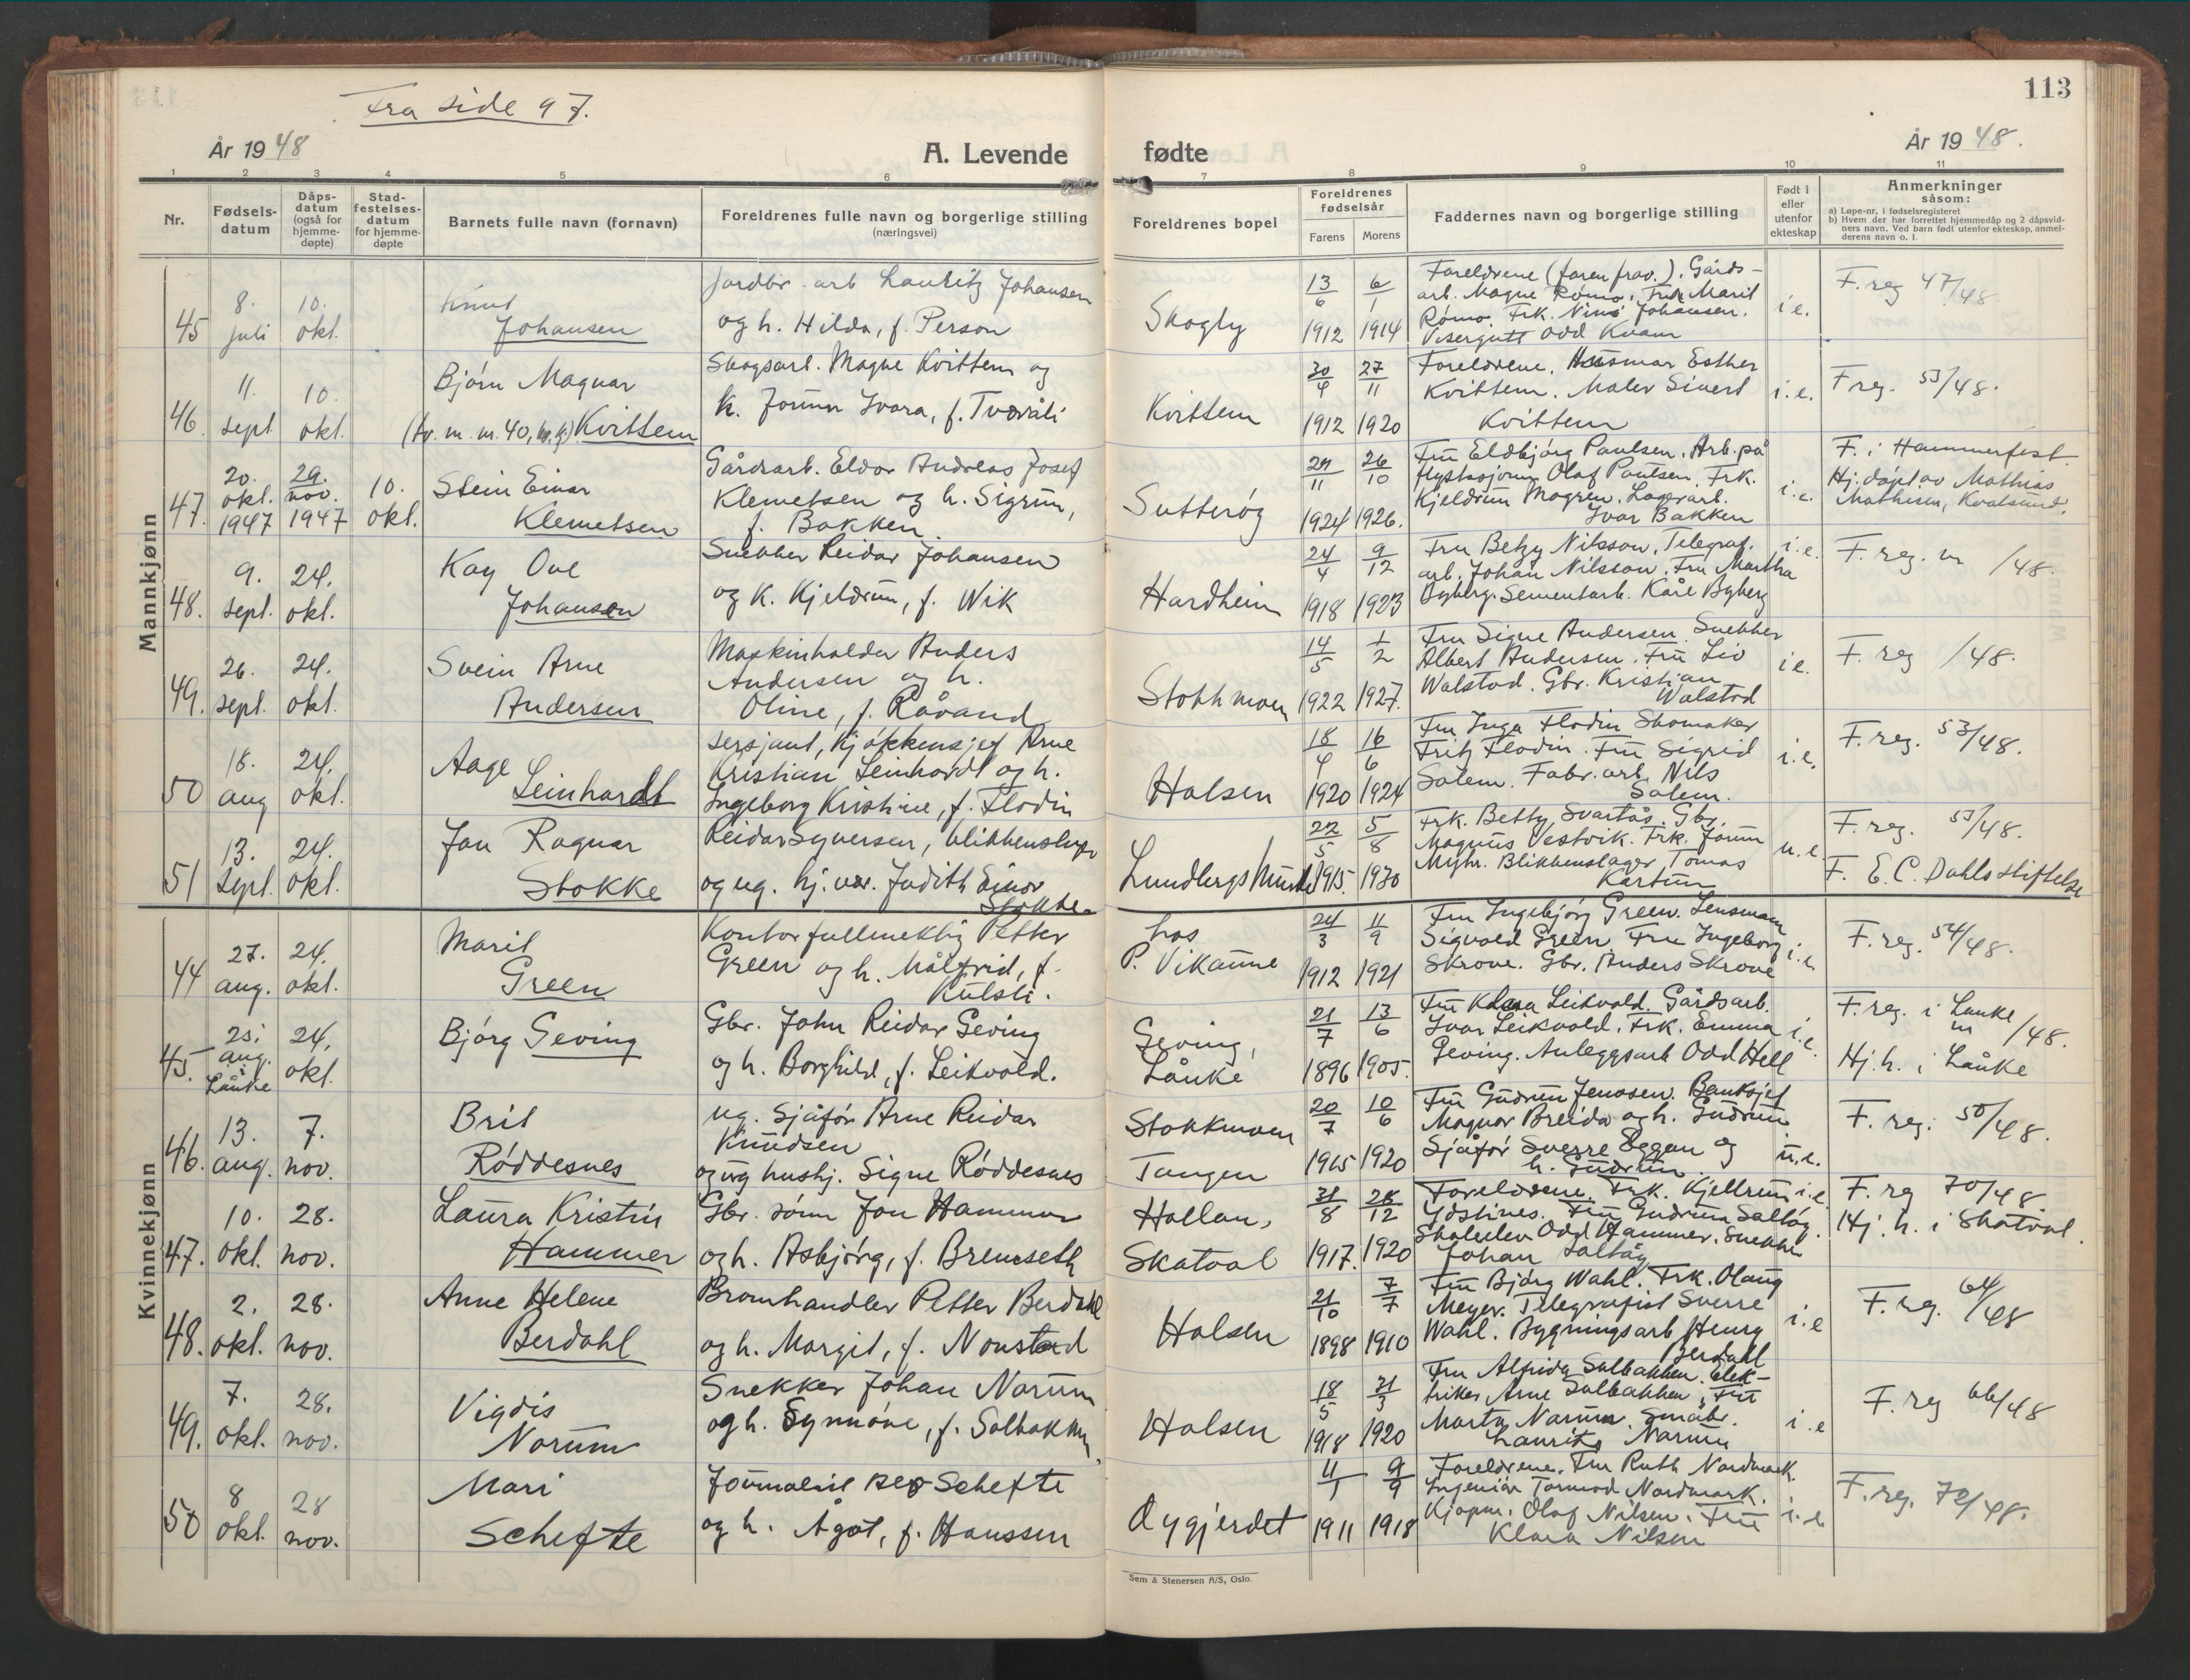 Fra side 97.
113
År 1948
A. Levende
fødte
År 1948.
1 2 3 4 5 6 7 8 9 10 11
Nr.
Fødsels-
datum
Dåps-
datum
(også for
hjemme-
døpte)
Stad-
festelses-
datum
for hjemme-
døpte
Barnets fulle navn (fornavn)
Foreldrenes fulle navn og borgerlige stilling
(næringsvei)
Foreldrenes bopel
Foreldrenes
fødselsår
Farens
Morens
Faddernes navn og borgerlige stilling
Født i
eller
utenfor
ekteskap
Anmerkninger
såsom:
a) Løpe-nr. i fødselsregisteret
b) Hvem der har forrettet hjemmedåp og 2 dåpsvid-
ners navn. Ved barn født utenfor ekteskap, anmel-
derens navn o. l.
Mannkjønn
45
8.
juli
10.
okt.
Knut
Johansen
Jordbr. arb Lauritz Johansen
og h. Hilda, f. Person
Skogly
13/6 1912
6/1 1914
Foreldrene (faren frav.). Gårds-
arb. Magne Rømo. Frk Marit
Rømo. Frk. Johansen.
Visergutt Odd Kvam
i e.
F. reg 47/48
46.
11.
sept
10.
okt.
Bjørn Magnar
(tv. m. nr. 40, kv.kj) Kvittem
Skogsarb. Magne Kvittem og
h. Jorunn Ivara, f. Tværåli
Kvittem
30/4 1912
27/11 1920
Foreldrene. Husmor Esther
Kvittem. Maler Sivert
Kvittem
i.e.
F reg. 53/48.
47.
20.
okt.
1947
29.
nov.
1947
10.
okt.
Stein Einar
Klemetsen
Gårdsarb. Eldor Andreas Josef
Klemetsen og h. Sigrun,
f. Bakken.
Sutterøy
29/11 1924
26/10 1926.
Fru Eldbjørg Paulsen. Arb. på
flystasjonen Olaf Paulsen. Frk.
Kjeldrun Mogren. Lagerarb.
Ivar Bakken
i.e.
F. i Hammerfest.
Hj. døpt av Mathias
Mathisen, Kvalsund.
48.
9.
sept.
24.
okt.
Kay Ove
Johansen
Snekker Reidar Johansen
og h. Kjeldrun, f. Wik
Hardheim
24/4 1918
9/12 1923
Fru Betzy Nilsson. Telegraf.
arb. Johan Nilsson. Fru Martha
Byberg. Sementarb. Kåre Byberg
i.e.
F. reg. nr /48.
49.
26.
sept.
24.
okt.
Svein Arne
Andersen
Maskinholder Anders
Andersen og h.
Oline, f. Råvand
Stokkmoen
14/5 1922
1/2 1927.
Fru Signe Andersen. Snekker
Albert Andersen. Fru Liv
Walstad. Gbr. Kristian
Walstad
i e.
F. reg /48.
50
18.
aug
24.
okt.
Aage
Leinhardt
Sersjant, kjøkkensjef Arne
Kristian Leinhardt og h.
Ingeborg Kristine, f. Flodin
Halsen
18/4 1920
16/6 1924
Fru Inga Flodin Skomaker
Fritz Flodin. Fru Sigrid
Salem. Fabr. arb. Nils
Salem.
i.e.
F. reg. 53/48.
51
13.
sept.
24.
okt.
Jan Ragnar
Stokke
Reidar Syversen, blikkenslager
og ug. hj.vær. Judith Einor
Stokke
22/5 1915.
5/8 1930
Frk. Betty Svartås. Gbr.
Magnus Vestvik. Frk. Jorun
Myhr. Blikkenslager Tomas
Kartum
u. e
F. reg. 53/48.
F. E. C. Dahls stiftelse
Kvinnekjønn
44
27.
aug.
24.
okt.
Marit
Green
Kontorfullmektig Petter
Green og h. Målfrid, f.
Kulsli.
hos
P. Vikaune
24/3 1912
11/9 1921
Fru Ingebjørg Green. Lensmann
Sigvald Green. Fru Ingeborg
Skrove. Gbr. Anders Skrove
i.e.
F. reg. 54/48.
45.
25.
aug.
i
Lånke
24.
okt.
Bjørg Geving
Gbr. John Reidar Geving
og h. Borghild, f. Leikvold.
Geving,
Lånke
21/7 1896
13/6 1905.
Fru Klara Leikvold. Gårdsarb.
Ivar Leikvold. Frk. Emma
Geving. Anleggsarb Odd Hell
i.e.
F. reg. i Lånke
nr /48.
Hj. h. i Lånke
46.
13.
aug.
7.
nov.
Brit
Røddesnes
ug. Sjåfør Arne Reidar
Knudsen
og ug hushj. Signe Røddesnes
Stokkmoen
Tangen
20/7 1915
10/6 1920
Fru Gudrun Jenssen. Banksjef
Magnar Breida og h. Gudrun
Sjåfør Sverre Eggan og
h. Gudrun.
u.e.
F. reg. 50/48.
47.
10.
okt.
28.
nov.
Laura Kristin
Hammer
Gbr. sønn Jon Hammer
og h. Asbjørg, f. Bremseth
Hollan,
Skatval
31/8 1917.
28/12 1920
Foreldrene. Frk. Kjellrun
Ydstines. Fru Gudrun Saltøy.
Skoleelev Odd Hammer. Snekker
Johan Saltøy
i e.
F. reg 70/48.
Hj. h. i Skatval.
48.
2.
okt.
28.
nov.
Anne Helene
Berdahl
Bromhandler Petter Berdahl
og h. Margit, f. Nonstad
Halsen
21/10 1898
7/7 1910
Fru Bjørg Wahl. Frk. Olaug
Meyer. Telegrafist Sverre
Wahl. Bygningsarb Henry
Berdahl
i.e
F. reg. 64/48
49.
7.
okt.
28.
nov.
Vigdis
Norum
Snekker Johan Norum
og h. Synnøve, f. Solbakken
Halsen
18/5 1918
31/3 1920
Fru Alfrida Solbakken. Elek-
triker Arne Solbakken, Fru
Marta Norum. Småbr.
Laurits Norum
i.e
F. reg 66/48
50
8
okt.
28
nov.
Mari
Schefte
Journalist Schefte
og h. Ågot, f. Hanssen
Øygjerdet
11/1 1911
9/9 1918
Foreldrene. Fru Ruth Nordmark.
Ingeniør Tormod Nordmark.
Kjøpm. Olaf Nilsen. Fru
Klara Nilsen
i.e
F. reg. 72/48.
Sem & Stenersen A/S, Oslo.